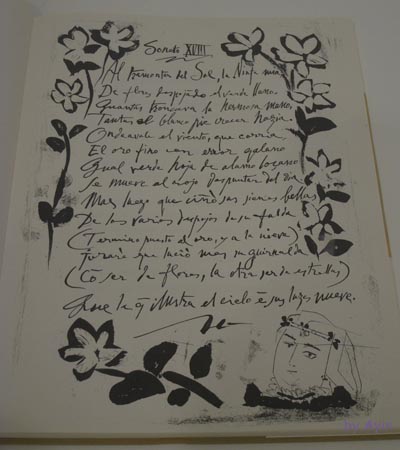 Soneto XVIII
Al tramontar del Sol, la Ninfa mia
De flores despojando el verde llano
Quantas troncava la hermosa mano,
Tantas el blanco pie crecer hazia.
Ondeavale el viento, que corria
El oro fino con error galano
Qual verde hoja de alamo loçano
Se mueve al rojo despuntar del dia
Mas luego que ciño sus sienes bellas
De los varios despojos de su falda
(Termino puesto al oro, y a la nieve)
Juraré que lució mas su guirnalda
(Co ser de flores, la otra ser de estrellas)
Que la q ilustra el cielo e sus luzes nueve.
by